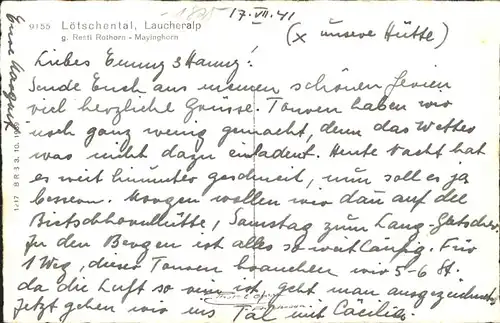 9155 Lötschental, Laucheralp
g. Resti Rothorn - Mayinghorn
1835
17. VII. 41
(x unsere Hütte)
Liebes Emmy & Hanny!
Sende Euch aus meinen schönen Ferien
viel herzliche Grüsse. Touren haben wir
noch ganz wenig gemacht, denn das Wetter
was nicht dazu einladent. Heute Nacht hat
es weit hinunter geschneit, nun soll es ja
bessern. Morgen wollen wir dan auf die
Bietschhornhütte, Samstag zum Lang-Gletscher
In den Bergen ist alles so weitläufig. Für
1 Weg, dieser Touren brauchen wir 5-6 St.
da die Luft so rein ist, geht man ausgezeichnet
Jetzt gehen wir ins Tal mit Cäcilia.
Eure Margrit